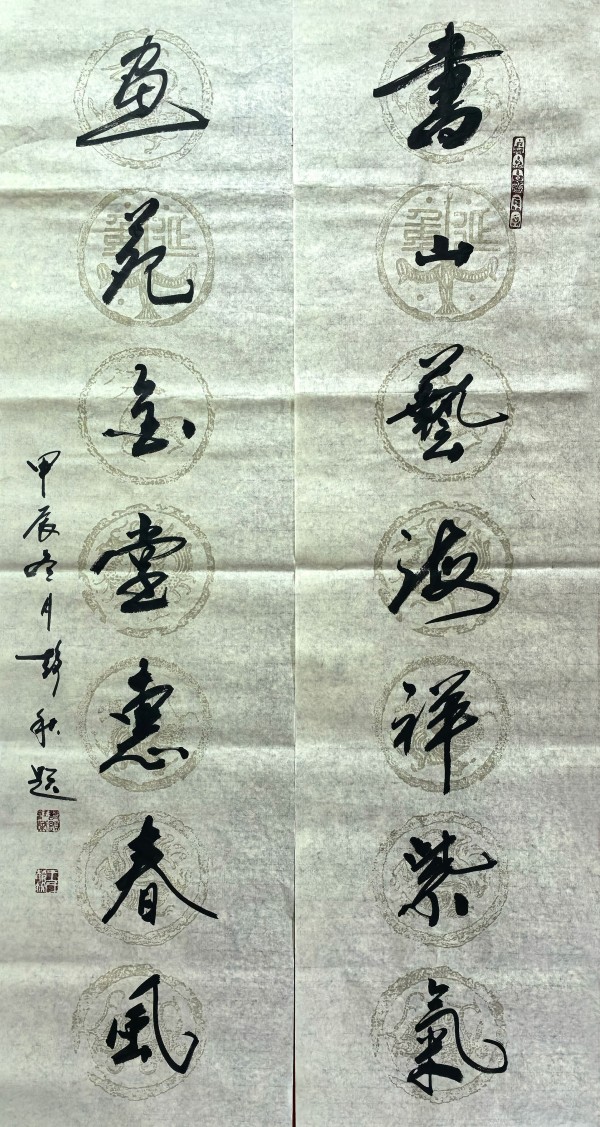 書山藝海祥紫氣
畫苑金堂惠春風
甲辰冬月靜秋題